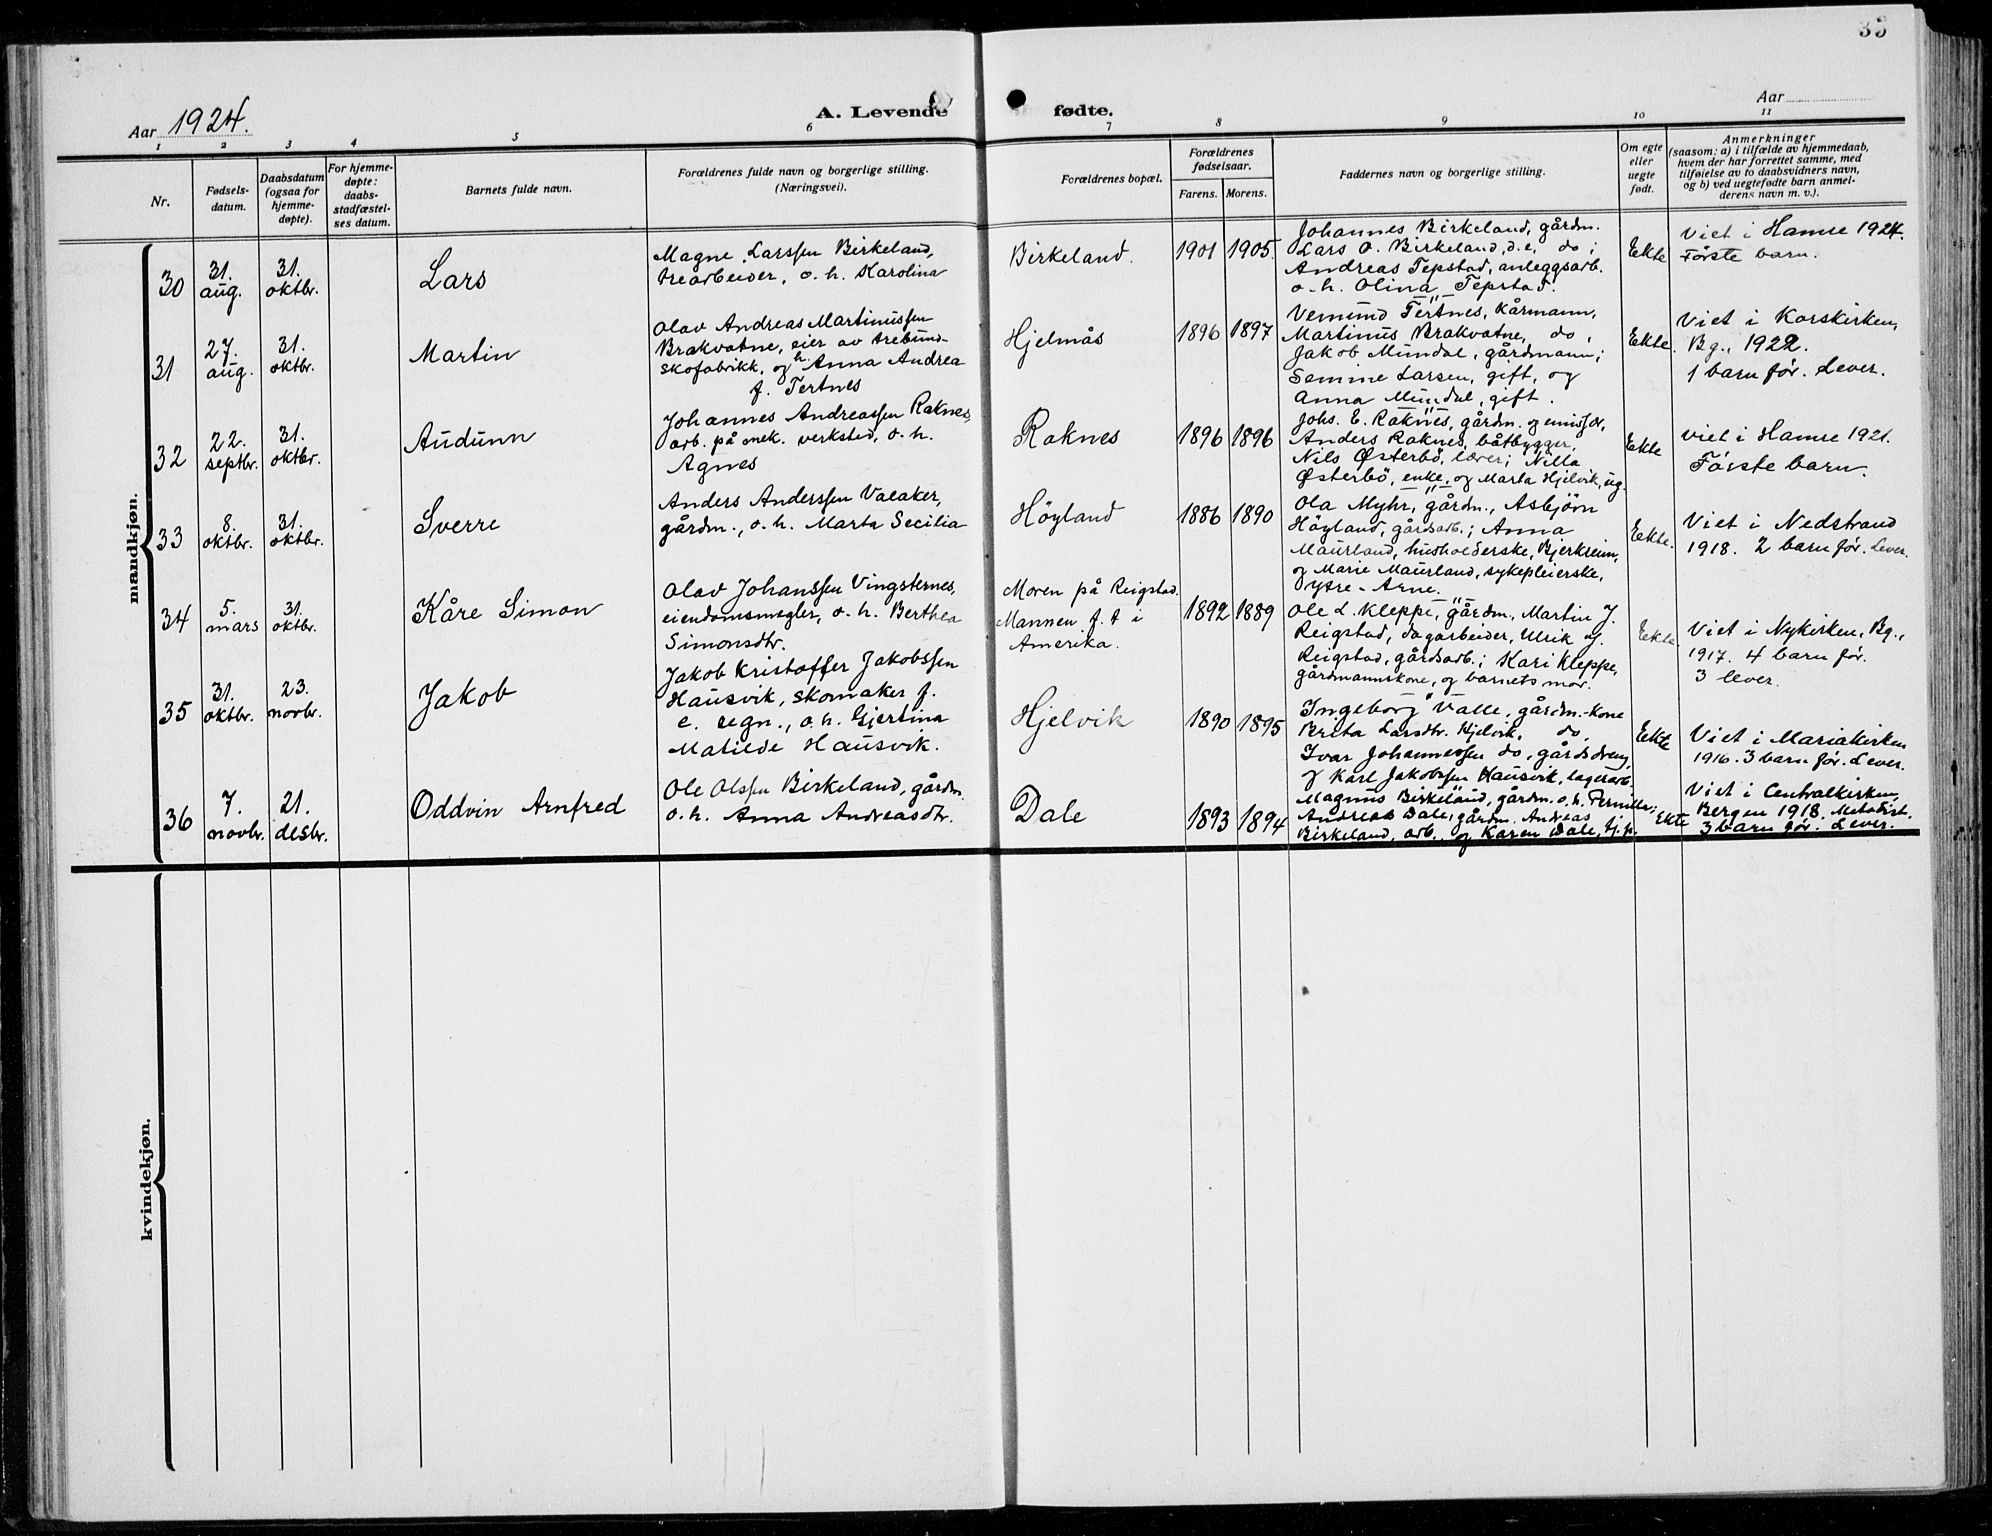 35
Aar 1924.
A. Levende fødte.
Aar
1 2 3 4 5 6 7 8 9 10 11
Nr.
Fødsels-
datum.
Daabsdatum
(ogsaa for
hjemme-
døpte).
For hjemme-
døpte:
daabs-
stadfæstel-
ses datum.
Barnets fulde navn.
Forældrenes fulde navn og borgerlige stilling.
(Næringsvei).
Forældrenes bopæl.
Forældrenes
fødselsaar.
Farens. Morens.
Faddernes navn og borgerlige stilling.
Om egte
eller
uegte
født.
Anmerkninger
(saasom: a) i tilfælde av hjemmedaab,
hvem der har forrettet samme, med
tilføielse av to daabsvidners navn,
og b) ved uegtefødte barn anmel-
derens navn m. v.).
mandkjøn.
30
31.
aug.
31.
oktbr.
Lars
Magne Larssen Birkeland,
trearbeider, o. h. Karolina
Birkeland.
1901 1905.
Johannes Birkeland, gårdm.
Lars O. Birkeland, d.e, do;
Andreas Tepstad, anleggsarb.
o. h. Olina Tepstad.
Ekte
Viet i Hamre 1924.
Første barn.
31
27.
aug.
31.
oktbr.
Martin
Olav Andreas Martinussen
Brakvatne, eier av trebunn-
skofabrikk, og h. Anna Andrea
f. Tertnes
Hjelmås
1896 1897
Vemund Tertnes, kårmann,
Martinus Brakvatne, do,
Jakob Mundal, gårdmann;
Semine Larsen, gift, og
Anna Mundal, gift.
Ekte.
Viet i Korskirken,
Bg., 1922.
1 barn før. Lever.
32
22.
septbr.
31.
oktbr.
Audunn
Johannes Andreassen Raknes,
arb. på mek. verksted, o. h.
Agnes
Raknes
1896 1896
Johs. E. Raknes, gårdm. og emissær,
Anders Raknes, båtbygger,
Nils Østerbö, lærer; Nilla
Østerbö, enke, og Marta Hjelvik, ug.
Ekte
viet i Hamre 1921.
Første barn.
33
8.
oktbr.
31.
oktbr.
Sverre
Anders Anderssen Valaker,
gårdm., o. h. Marta Secilia
Höyland
1886 1890
Ola Myhr, gårdm., Asbjørn
Höyland, gårdsarb.; Anna
Maurland, husholderske, Bjerkreim,
og Marie Maurland, sykepleierske,
Ytre-Arne.
Ekte.
Viet i Nedstrand
1918. 2 barn før. Lever.
34
5.
mars
31.
oktbr.
Kåre Simon
Olav Johanssen Vingsternes,
eiendomsmegler, o. h. Berthea
Simonsdtr.
Moren på Reigstad.
Mannen f. t i
Amerika.
1892 1889
Ole L. Kleppe, gårdm, Martin J.
Reigstad, dagarbeider, Ulrik J.
Reigstad, gårdsarb.; Kari Kleppe,
gårdmannskone, og barnets mor.
Ekte.
Viet i Nykirken, Bg.,
1917. 4 barn før.
3 lever.
35
31.
oktbr.
23.
novbr.
Jakob
Jakob Kristoffer Jakobssen
Hausvik, skomaker f.
e. regn., o. h. Gjertina
Matilde Hausvik.
Hjelvik
1890 1895
Ingeborg Valle, gårdm.-kone
Brita Larsdtr. Hjelvik, do,
Ivar Johannessen do, gårdsdreng,
og Karl Jakobssen Hausvik, lagerarb.
Ekte
Viet i Mariakirken
1916. 3 barn før. Lever.
36
7.
novbr.
21.
desbr.
Oddvin Arnfred
Ole Olssen Birkeland, gårdm.
o. h. Anna Andreasdtr.
Dale
1893 1894
Magnus Birkeland, gårdm. o. h. Pernille;
Andreas Dale, gårdm. Andreas
Birkeland, arb. og Karen Dale, tj. p.
Ekte
Viet i Centralkirken,
Bergen 1918. Metodist.
3 barn før. Lever.
kvindekjøn.